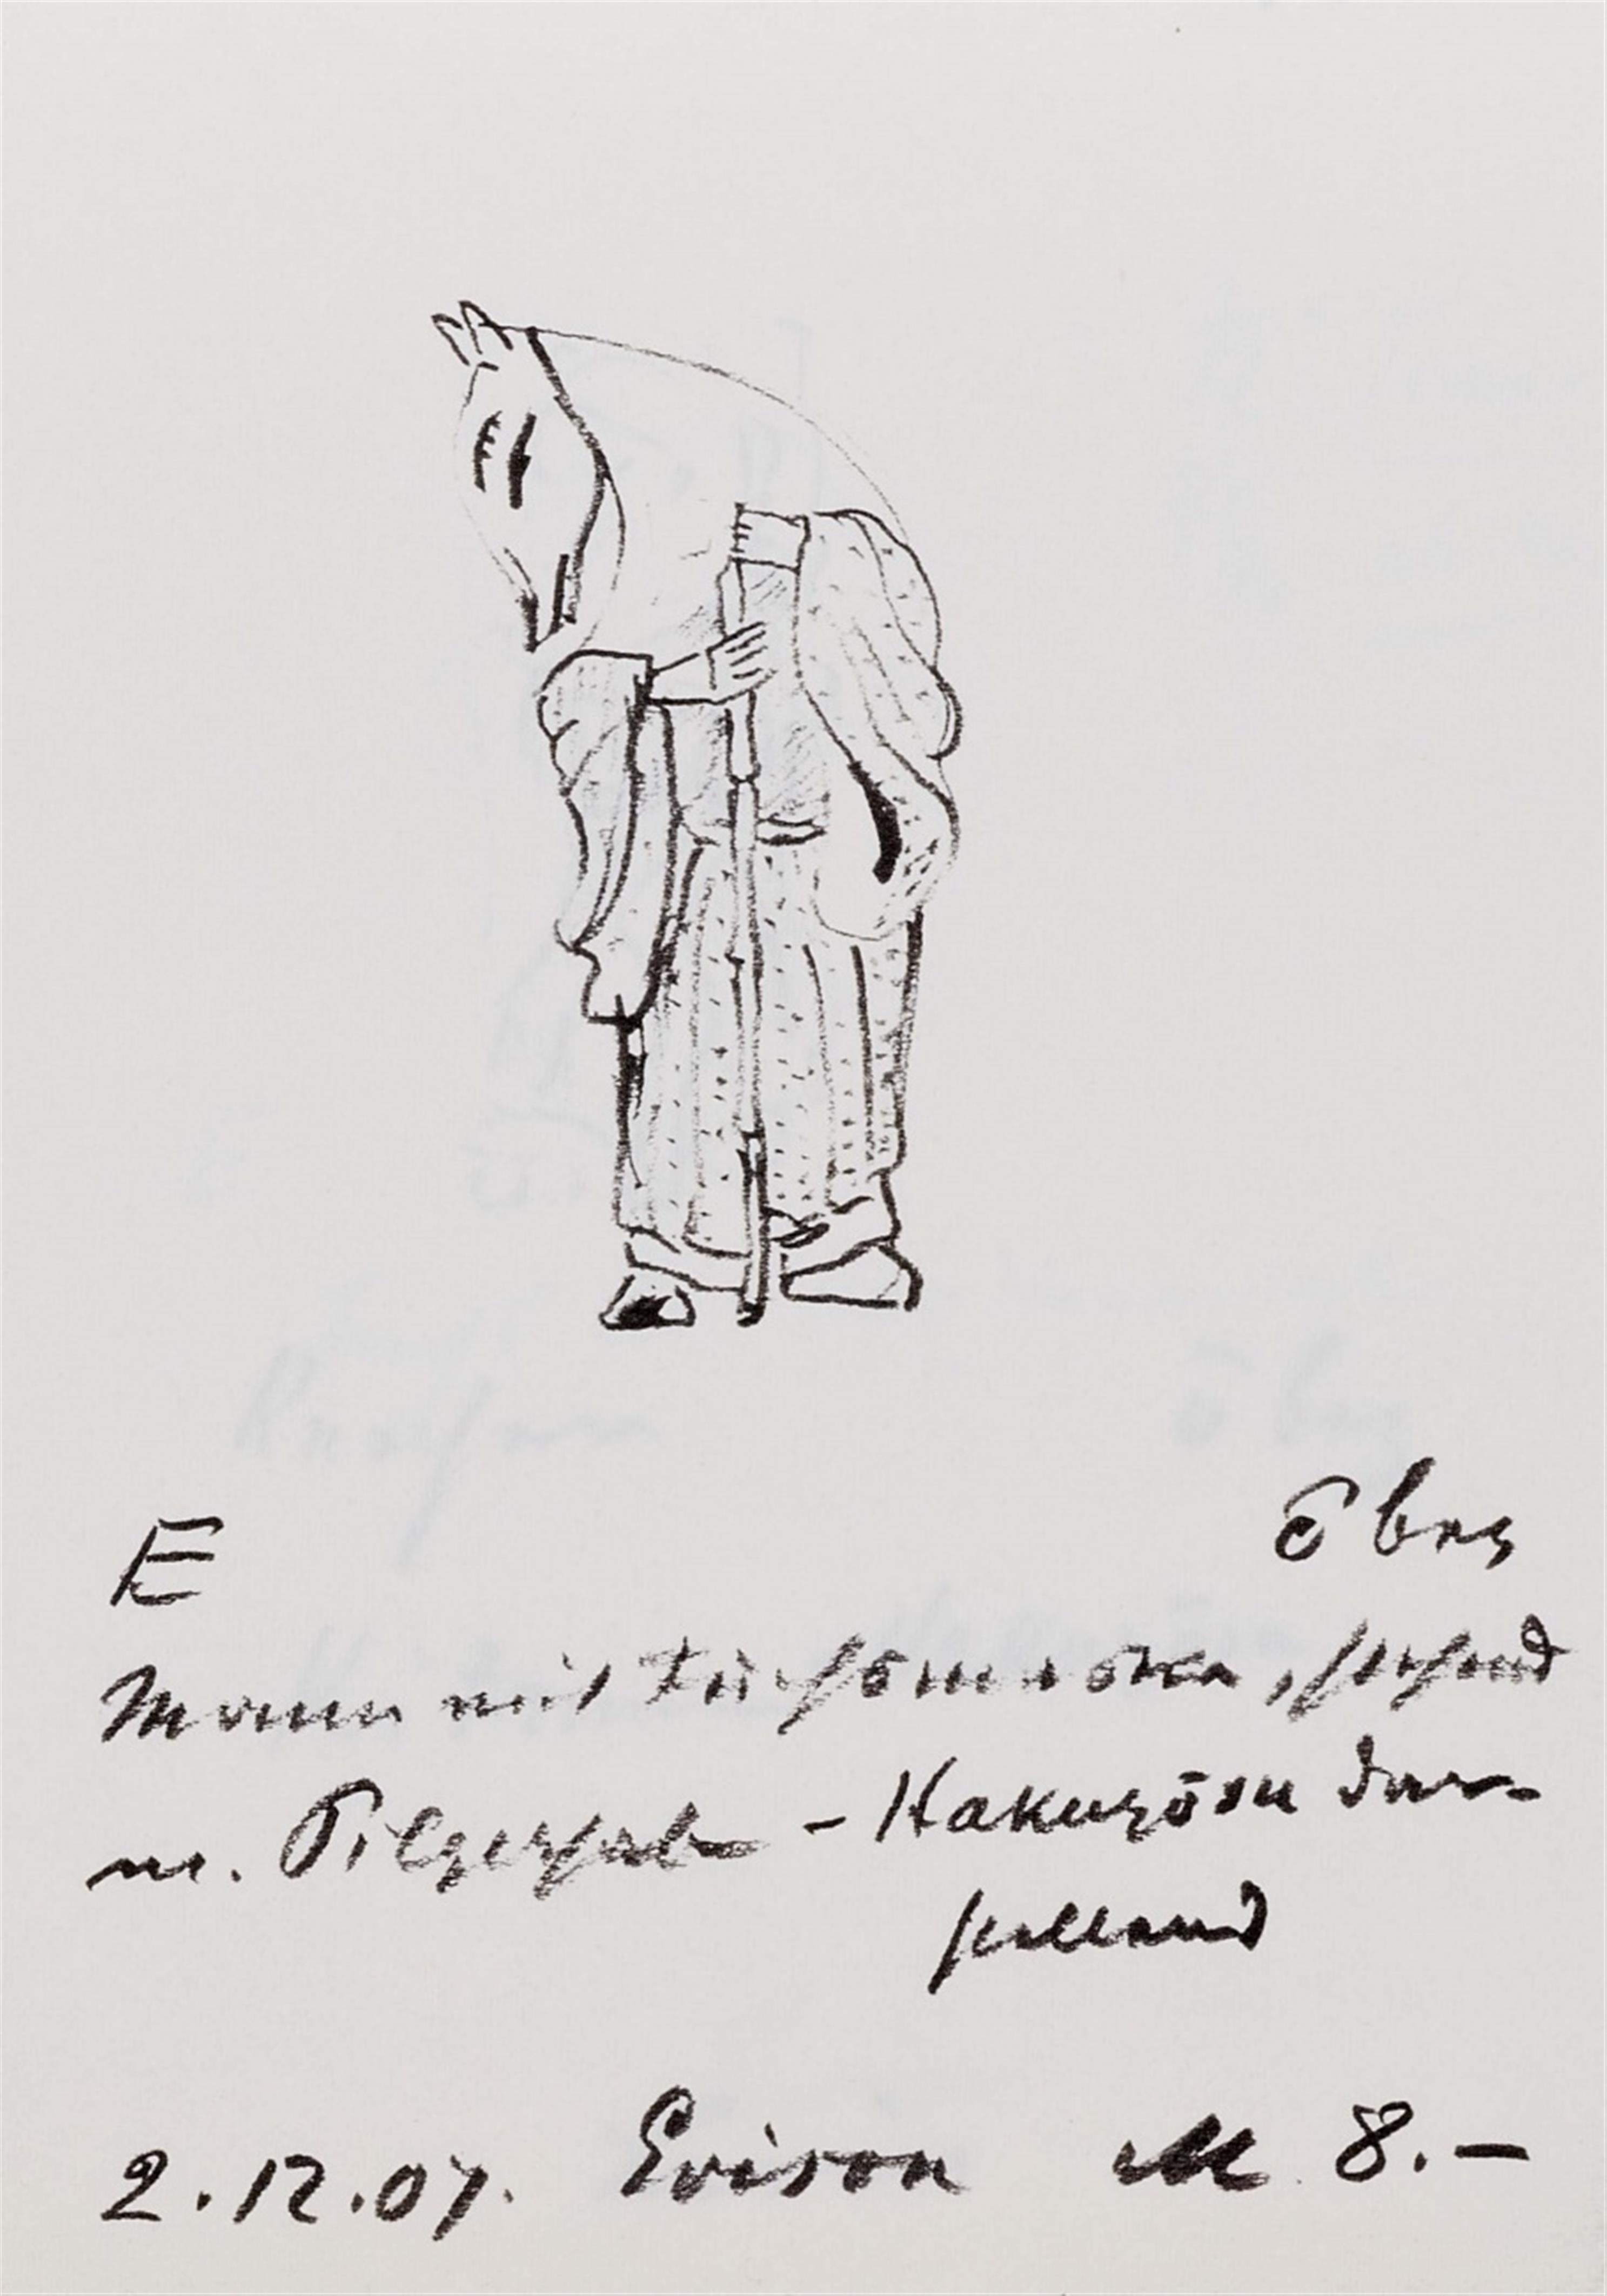 E
Mann mit Fuchsmaske, stehend
m. Pilgerstab - Hakuzōsu dar-
stellend
2.12.07. Evison M 8.-